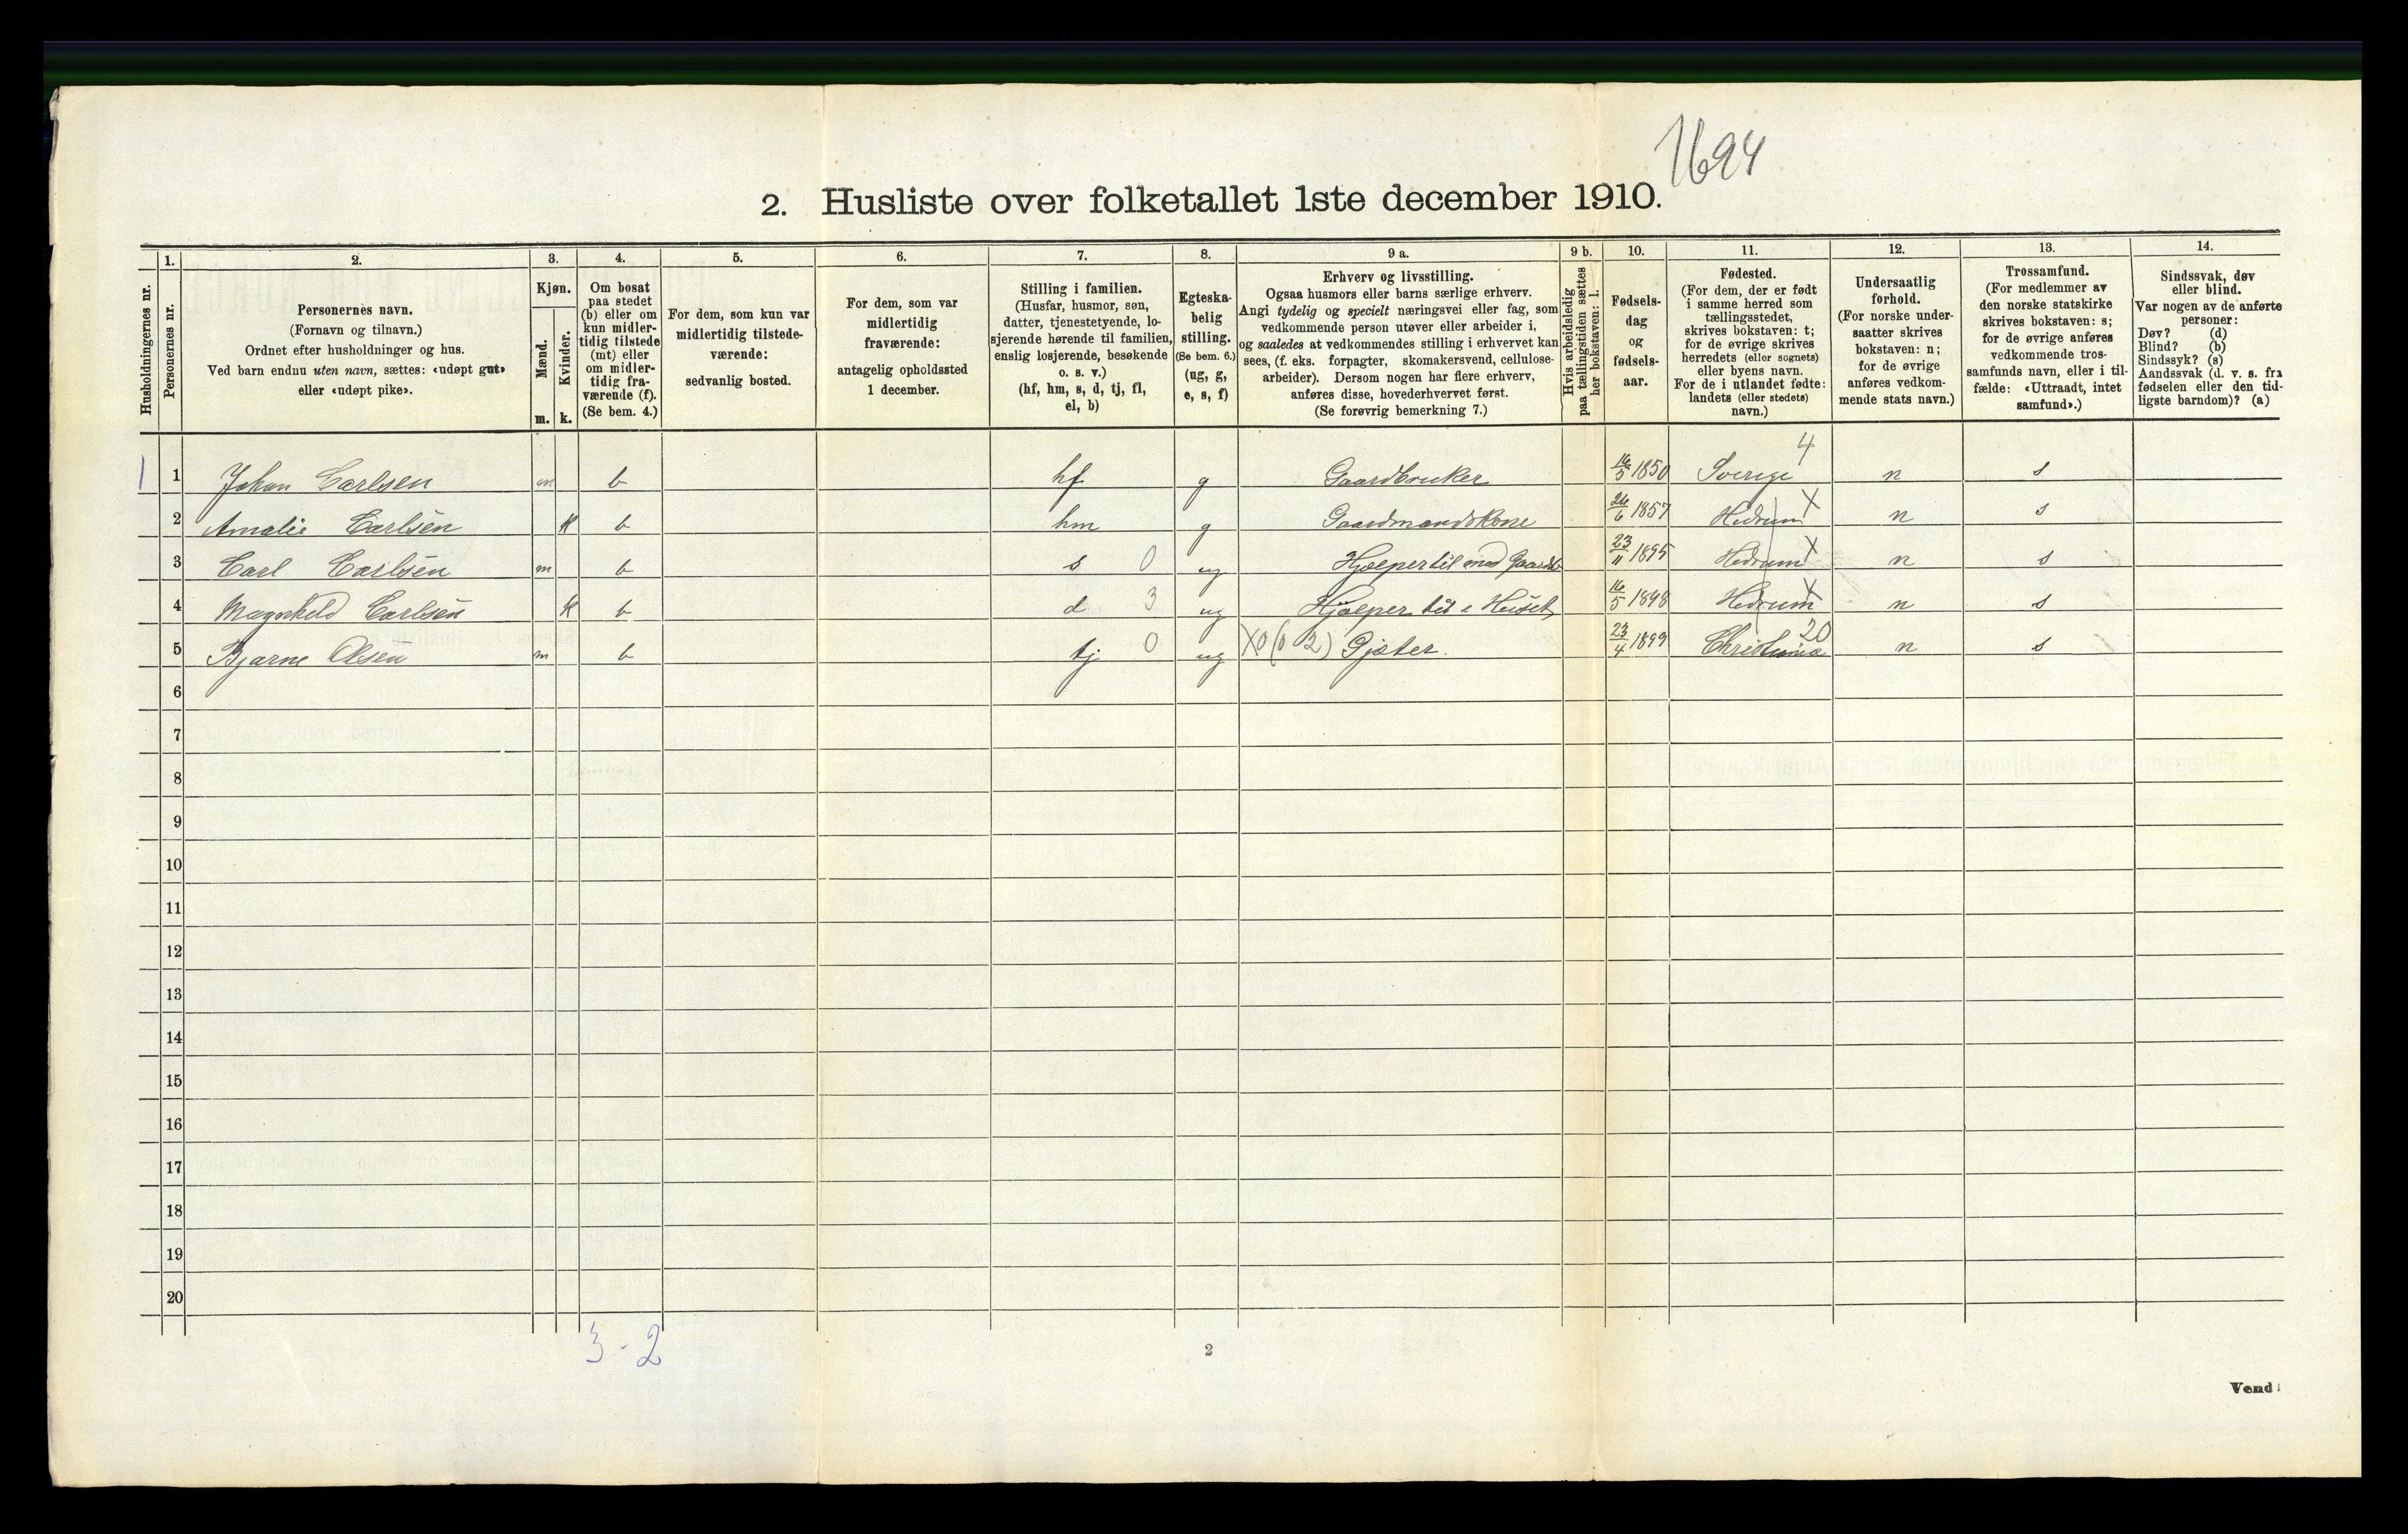 1694
2. Husliste over folketallet 1ste december 1910.
Husholdningernes nr.
1.
Personernes nr.
2.
Personernes navn.
(Fornavn og tilnavn.)
Ordnet efter husholdninger og hus.
Ved barn endnu uten navn, sættes: «udøpt gut»
eller «udøpt pike».
3.
Kjøn.
Mænd.
m.
Kvinder.
k.
4.
Om bosat
paa stedet
(b) eller om
kun midler-
tidig tilstede
(mt) eller
om midler-
tidig fra-
værende (f).
(Se bem. 4.)
5.
For dem, som kun var
midlertidig tilstede-
værende:
sedvanlig bosted.
6.
For dem, som var
midlertidig
fraværende:
antagelig opholdssted
1 december.
7.
Stilling i familien.
(Husfar, husmor, søn,
datter, tjenestetyende, lo-
sjerende hørende til familien,
enslig losjerende, besøkende
o. s. v.)
(hf, hm, s, d, tj, fl,
el, b)
8.
Egteska-
belig
stilling.
(Se bem. 6.)
(ug, g,
e, s, f)
9 a.
Erhverv og livsstilling.
Ogsaa husmors eller barns særlige erhverv.
Angi tydelig og specielt næringsvei eller fag, som
vedkommende person utøver eller arbeider i,
og saaledes at vedkommendes stilling i erhvervet kan
sees, (f. eks. forpagter, skomakersvend, cellulose-
arbeider). Dersom nogen har flere erhverv,
anføres disse, hovederhvervet først.
(Se forøvrig bemerkning 7.)
9 b.
Hvis arbeidsledig
paa tællingstiden sættes
her bokstaven: l.
10.
Fødsels-
dag
og
fødsels-
aar.
11.
Fødested.
(For dem, der er født
i samme herred som
tællingsstedet,
skrives bokstaven: t;
for de øvrige skrives
herredets (eller sognets)
eller byens navn.
For de i utlandet fødte:
landets (eller stedets)
navn.)
12.
Undersaatlig
forhold.
(For norske under-
saatter skrives
bokstaven: n;
for de øvrige
anføres vedkom-
mende stats navn.)
13.
Trossamfund.
(For medlemmer av
den norske statskirke
skrives bokstaven: s;
for de øvrige anføres
vedkommende tros-
samfunds navn, eller i til-
fælde: «Uttraadt, intet
samfund».)
14.
Sindssvak, døv
eller blind.
Var nogen av de anførte
personer:
Døv? (d)
Blind? (b)
Sindssyk? (s)
Aandssvak (d. v. s. fra
fødselen eller den tid-
ligste barndom)? (a)
1 1 Johan Carlsen m b hf g Gaardbruker 16/5 1850 Sverige 4 n s
2 Amalie Carlsen k b hm g Gaardmandskone 26/6 1857 Hedrum X n s
3 Carl Carlsen m b s 0 ug Hjælper til med Gaardb 23/11 1895 Hedrum X n s
4 Magnhild Carlsen k b d 3 ug Hjælper til i Huset 16/5 1898 Hedrum X n s
5 Bjarne Olsen m b tj 0 ug X0 (0 2) Gjæter. 23/4 1899 Christiania 20 n s
6
7
8
9
10
11
12
13
14
15
16
17
18
19
20
3 - 2
2
Vend!